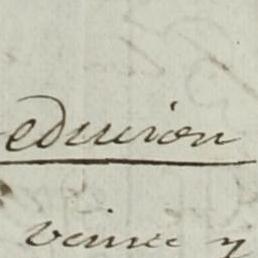 educion
veinte y